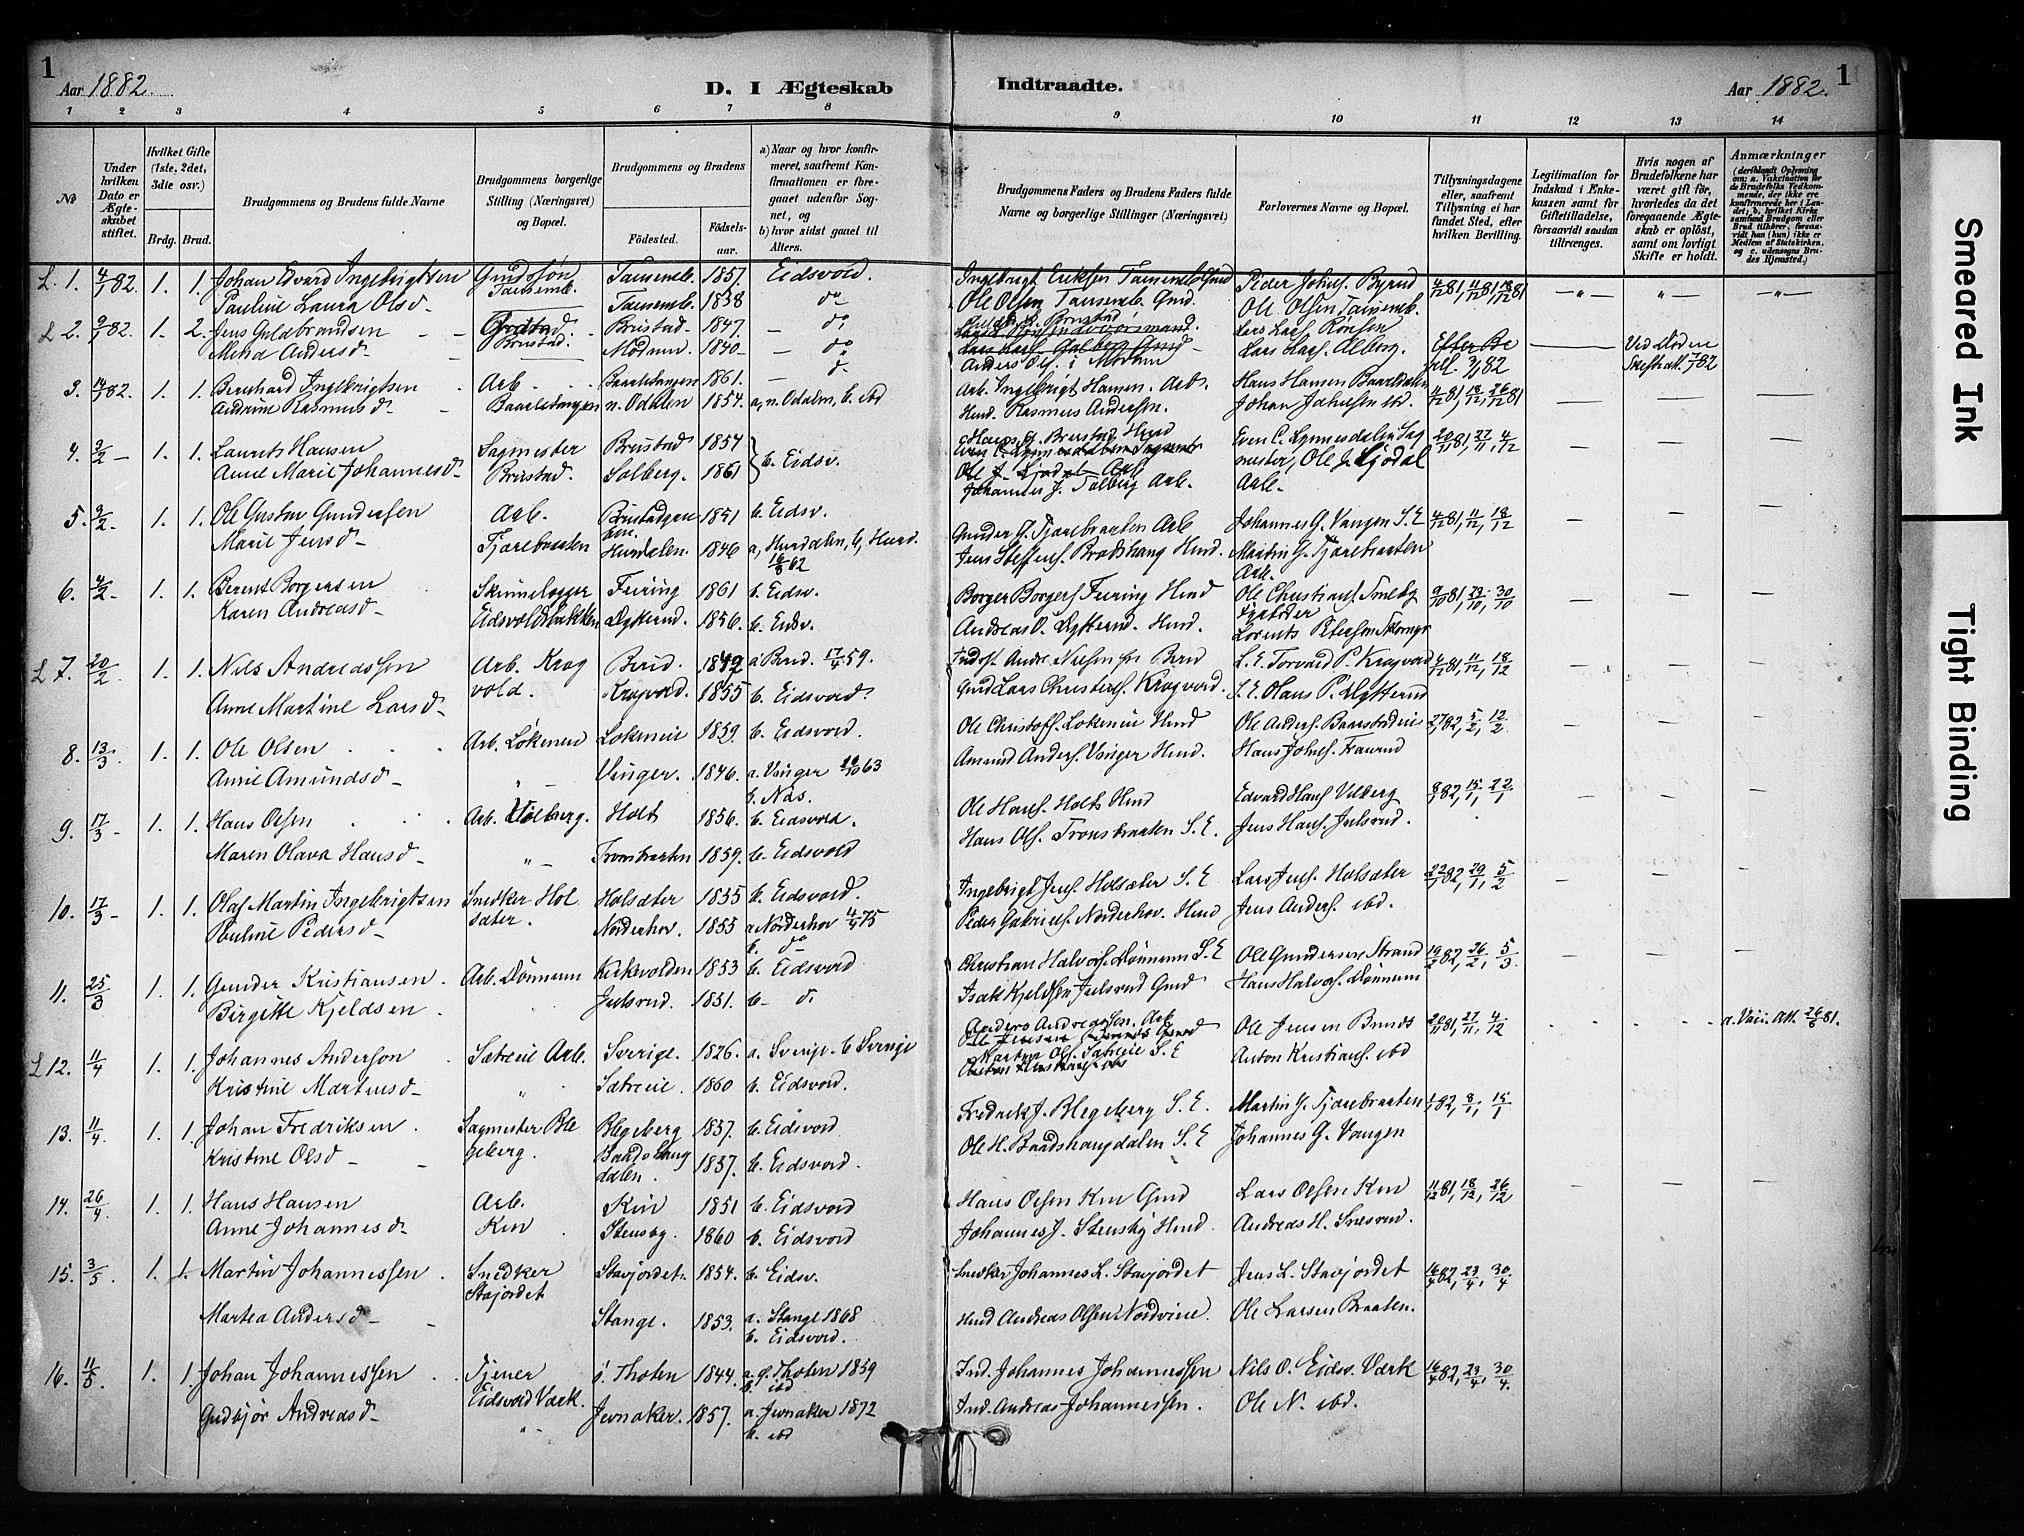 1
Aar 1882.
D. I Ægteskab
Indtraadte.
Aar 1882.
1
1 2 3 4 5 6 7 8 9 10 11 12 13 14
№
Under hvilken Dato er Ægteskabet stiftet.
Hvilket Gifte (1ste, 2det, 3die osv.)
Brdg. Brud.
Brudgommens og Brudens fulde Navne
Brudgommens borgerlige Stilling (Næringsvei) og Bopæl.
Brudgommens og Brudens
Fødested.
Fødselsaar.
a) Naar og hvor konfirmeret, saafremt Konfirmationen er foregaaet udenfor Sognet, og
b) hvor sidst gaaet til Alters.
Brudgommens Faders og Brudens Faders fulde Navne og borgerlige Stillinger (Næringsvei)
Forlovernes Navne og Bopæl.
Tillysningsdagene eller, saafremt Tillysning ei har fundet Sted, efter hvilken Bevilling.
Legitimation for Indskud i Enkekassen samt for Giftetilladelse, forsaavidt saadan tiltrænges.
Hvis nogen af Brudefolkene har været gift før, hvorledes da det foregaaende Ægteskab er opløst, samt om lovligt Skifte er holdt.
Anmærkninger (deriblandt Oplysning om: a. Vaccination for de Brudefolks Vedkommende, der ikke ere konfirmerede her i Landet; b. hvilket Kirkesamfund Brudgom eller Brud tilhører, forsaavidt han (hun) ikke er Medlem af Statskirken, og c. udensogns Brudes Hjemsted.)
L. 1. 4/1 82. 1. 1. Johan Edvard Ingebrigtsen Gaardssøn Tausemb. 1857. Eidsvold. Ingebrigt Eriksen Tausemb. Gmd Peder Johns. Byrud 4/12 81, 11/12 81, 18/12 81
Pauline Laura Olsd. Tausemb. Tausemb. 1838 do Ole Olsen Tausemb. Gmd. Ole Olsen Tausemb.
L 2. 9/1 82. 1. 2. Jens Guldbrandsen Brustad. Brustad 1847. do Lars Lars. Rønsen
Mena Andersd. Modum. 1840 do Anders Ols. i Modum Lars Lars. Alborg. Efter Bevill. 3/1 82 Ved Døden
3. 14/1 82. 1. 1. Bernhard Ingebrigtsen Arb. Baarlidangen 1861. do Arb. Ingebrigt Hansen. Arb. Hans Hansen Baarlidalen 4/12 81, 18/12, 26/12 81
Andrine Rasmusd. n. Odalen 1854. a, n. Odalen, b. ibd Hmd. Rasmus Andersen. Johan Johnsen ibd.
4. 9/2 1. 1. Laurits Hansen Sagmester Brustad 1854 b. Eidsv. Hans G. Brustad Hmd Even C. Lynnesdalen Sagmester, Ole J. Ljødal Arb. 20/11 81, 27/11, 4/12
Anne Marie Johannesd. Brustad. Solberg. 1861 Johannes J. Solberg Arb.
5. 9/2 1. 1. Ole Gustav Gundersen Arb. 1851 b. Eidsv. Gunder G. Tjærebraaten Arb Johannes G. Vangen S. E 4/12 81, 11/12, 18/12
Marie Jensd. Tjærebraaten Hurdalen. 1846 a, Hurdalen, b, Hurd. 16/8 62 Jens Steffens. Brødshaug Hmd. Martin G. Tjærebraaten Arb.
6. 4/2 1. 1. Berent Borgersen Skrinelægger Feiring 1861 b. Eidsv. Borger Borgers. Feiring Hmd Ole Christians. Smedby 9/10 81, 23/10, 30/10
Karen Andreasd. Eidsvoldsbakken Dytterud. 1856. b. Eidsv. Andreas O. Dytterud. Hmd. Lorents Petersen
L 7. 20/2 1. 1. Nils Andreassen Arb. Kragvold. Birid. 1842 a Birid. 17/4 59. Inds. Andr. Nielsen Birid L. E. Torvald P. Kragvold 4/12 81, 11/12, 18/12
Anne Martine Larsd. Kragvold. 1855 b. Eidsvold. Gmd Lars Christens. Kragvold. S. E. Hans P. Dytterud
8. 13/3 1. 1. Ole Olsen Arb. Løkeneie Løkeneie 1859. b. Eidsvold. Ole Christoffs. Løkeneie Hmd Ole Anders. Baarstadeie 82, 5/2, 12/2
Anne Amundsd. Vinger. 1846. a. Vinger 63 b. Næs. Amund Anders. Vinger Hmd. Hans Johns. Traurud
9. 17/3 1. 1. Hans Olsen Arb. Vilberg. Holt 1856. b. Eidsvold. Ole Hans. Holt Hmd Edvard Hans. Vilberg 8/1 82, 15/1, 22/1
Maren Olava Hansd. Tronsbraaten 1859. b. Eidsvold Hans Ols. Tronsbraaten S. E. Jens Hans. Julsrud.
10. 17/3 1. 1. Olaf Martin Ingebrigtsen Snedker Holsæter. Holsæter 1855 b. Eidsvold. Ingebrigt Jens. Holsæter S. E Lars Jens. Holsæter 22/1 82, 29/1, 5/2
Pauline Pedersd. Norderhov. 1855 a Norderhov 4/4 75 b. do Peder Gabriels. Norderhov. Hmd Jens Anders. ibd.
11. 25/3 1. 1. Gunder Kristiansen Arb. Dønnum Kirkevolden 1853 b. Eidsvold Christian Halvors. Dønnum S. E Ole Gundersen Strand 19/2 82, 26/2, 5/3
Birgitte Kjeldsen Julsrud. 1851. b. do Isak Kjeldsen Julsrud Gmd Hans Halvors. Dønnum
L 12. 11/4 1. 1. Johannes Anderson Sætreeie Arb. Sverige. 1826. a. Sverige. b Sverige Anders Andreassen. Arb Ole Jensen Bunds 20/11 81, 27/11, 4/12 a. Vacc. Att. 26/6 81.
Kristine Martinsd. Sætreeie. 1860 b. Eidsvold. Martin Ols. Sætreeie S. E Anton Kristians. ibd
13. 11/4 1. 1. Johan Fredriksen Sagmester Blegeberg. Blegeberg 1857. b. Eidsvold Fredrik J. Blegeberg S. E. Martin G. Tjærebraaten 1/1 82, 8/1, 15/1
Kristine Olsd. Baadshaugdalen. 1857. b. Eidsvold. Ole H. Baadshaugdalen S. E Johannes G. Vangen
14. 26/4 1. 1. Hans Hansen Arb. Kin Kin 1851 b. Eidsvold Hans Olsen Kin Gmd Lars Olsen Kin 11/12 81, 18/12, 26/12
Anne Johannesd. Stensby. 1860 b. Eidsvold Johannes J. Stensby Hmd. Andreas H. Snesrud.
15. 3/5 1. 1. Martin Johannessen Snedker Stajordet Stavjordet. 1854. b. Eidsv. Snedker Johannes L. Stavjordet Jens L. Stavjordet 16/4 82, 23/4, 30/4
Martea Andersd. Stange. 1853. a. Stange 1868 b. Eidsvold. Hmd Andreas Olsen Nordvieie. Ole Larsen Braaten.
16. 11/5 1. 1. Johan Johannessen Tjener ø. Thoten 1844. a. ø. Thoten 1859 b. ibd Ind. Johannes Johannessen Nils O. Eidsv. Værk 16/4 82, 23/4, 30/4.
Gudbjør Andreasd. Eidsvold Værk. Jevnaker. 1857. a. Jevnaker 1872 b. ibd Ind. Andreas Johannessen. Ole N. ibd.
Smeared Ink
Tight Binding